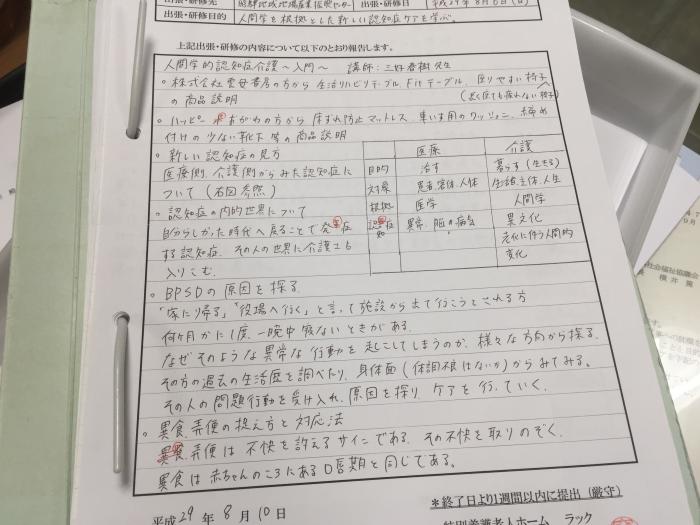 出張・研修先 出張・研修日 平成29年8月6日(日)
出張・研修目的 人間学を根拠とした新しい認知症ケアを学ぶ。
上記出張・研修の内容について以下のとおり報告します。
人間学的認知症介護〜入門〜 講師:三好春樹先生
。株式会社雲母書房の方から生活リハビリテーブル、Fitテーブル、座りやすい椅子
の商品説明 (長く座ても疲れない椅子)
。ハッピーおがわの方から床ずれ防止マットレス、車いす用のクッション、締め
付けの少ない靴下等の商品説明
。新しい認知症の見方
医療側、介護側からみた認知症に
ついて(右図参照)
。認知症の内的世界について
自分らしかった時代へ戻ることで発症
する認知症、その人の世界に介護士も
入りこむ。
医療 介護
目的 治す 暮らす(生きる)
対象 患者、客体、人体 生活主体、人生
根拠 医学 人間学
認知症 異常、脳の病気 異文化
老化に伴う人間的
変化
。BPSDの原因を探る
「家に帰る」「役場へ行く」と言って施設から出て行こうとされる方
何ヶ月かに1度、一晩中寝ないときがある。
なぜそのような異常な行動を起こしてしまうのか、様々な方向から探る。
その方の過去の生活歴を調べたり、身体面(体調不良はないか)からみてみる。
その人の問題行動を受け入れ、原因を探り、ケアを行っていく。
。異食、弄便の捉え方と対応法
弄便は不快を訴えるサインである。その不快を取りのぞく。
異食は赤ちゃんのころにある口唇期と同じである。
*終了日より1週間以内に提出(厳守)
平成29年8月10日
特別養護老人ホーム ラック
社会福祉協議会
横井